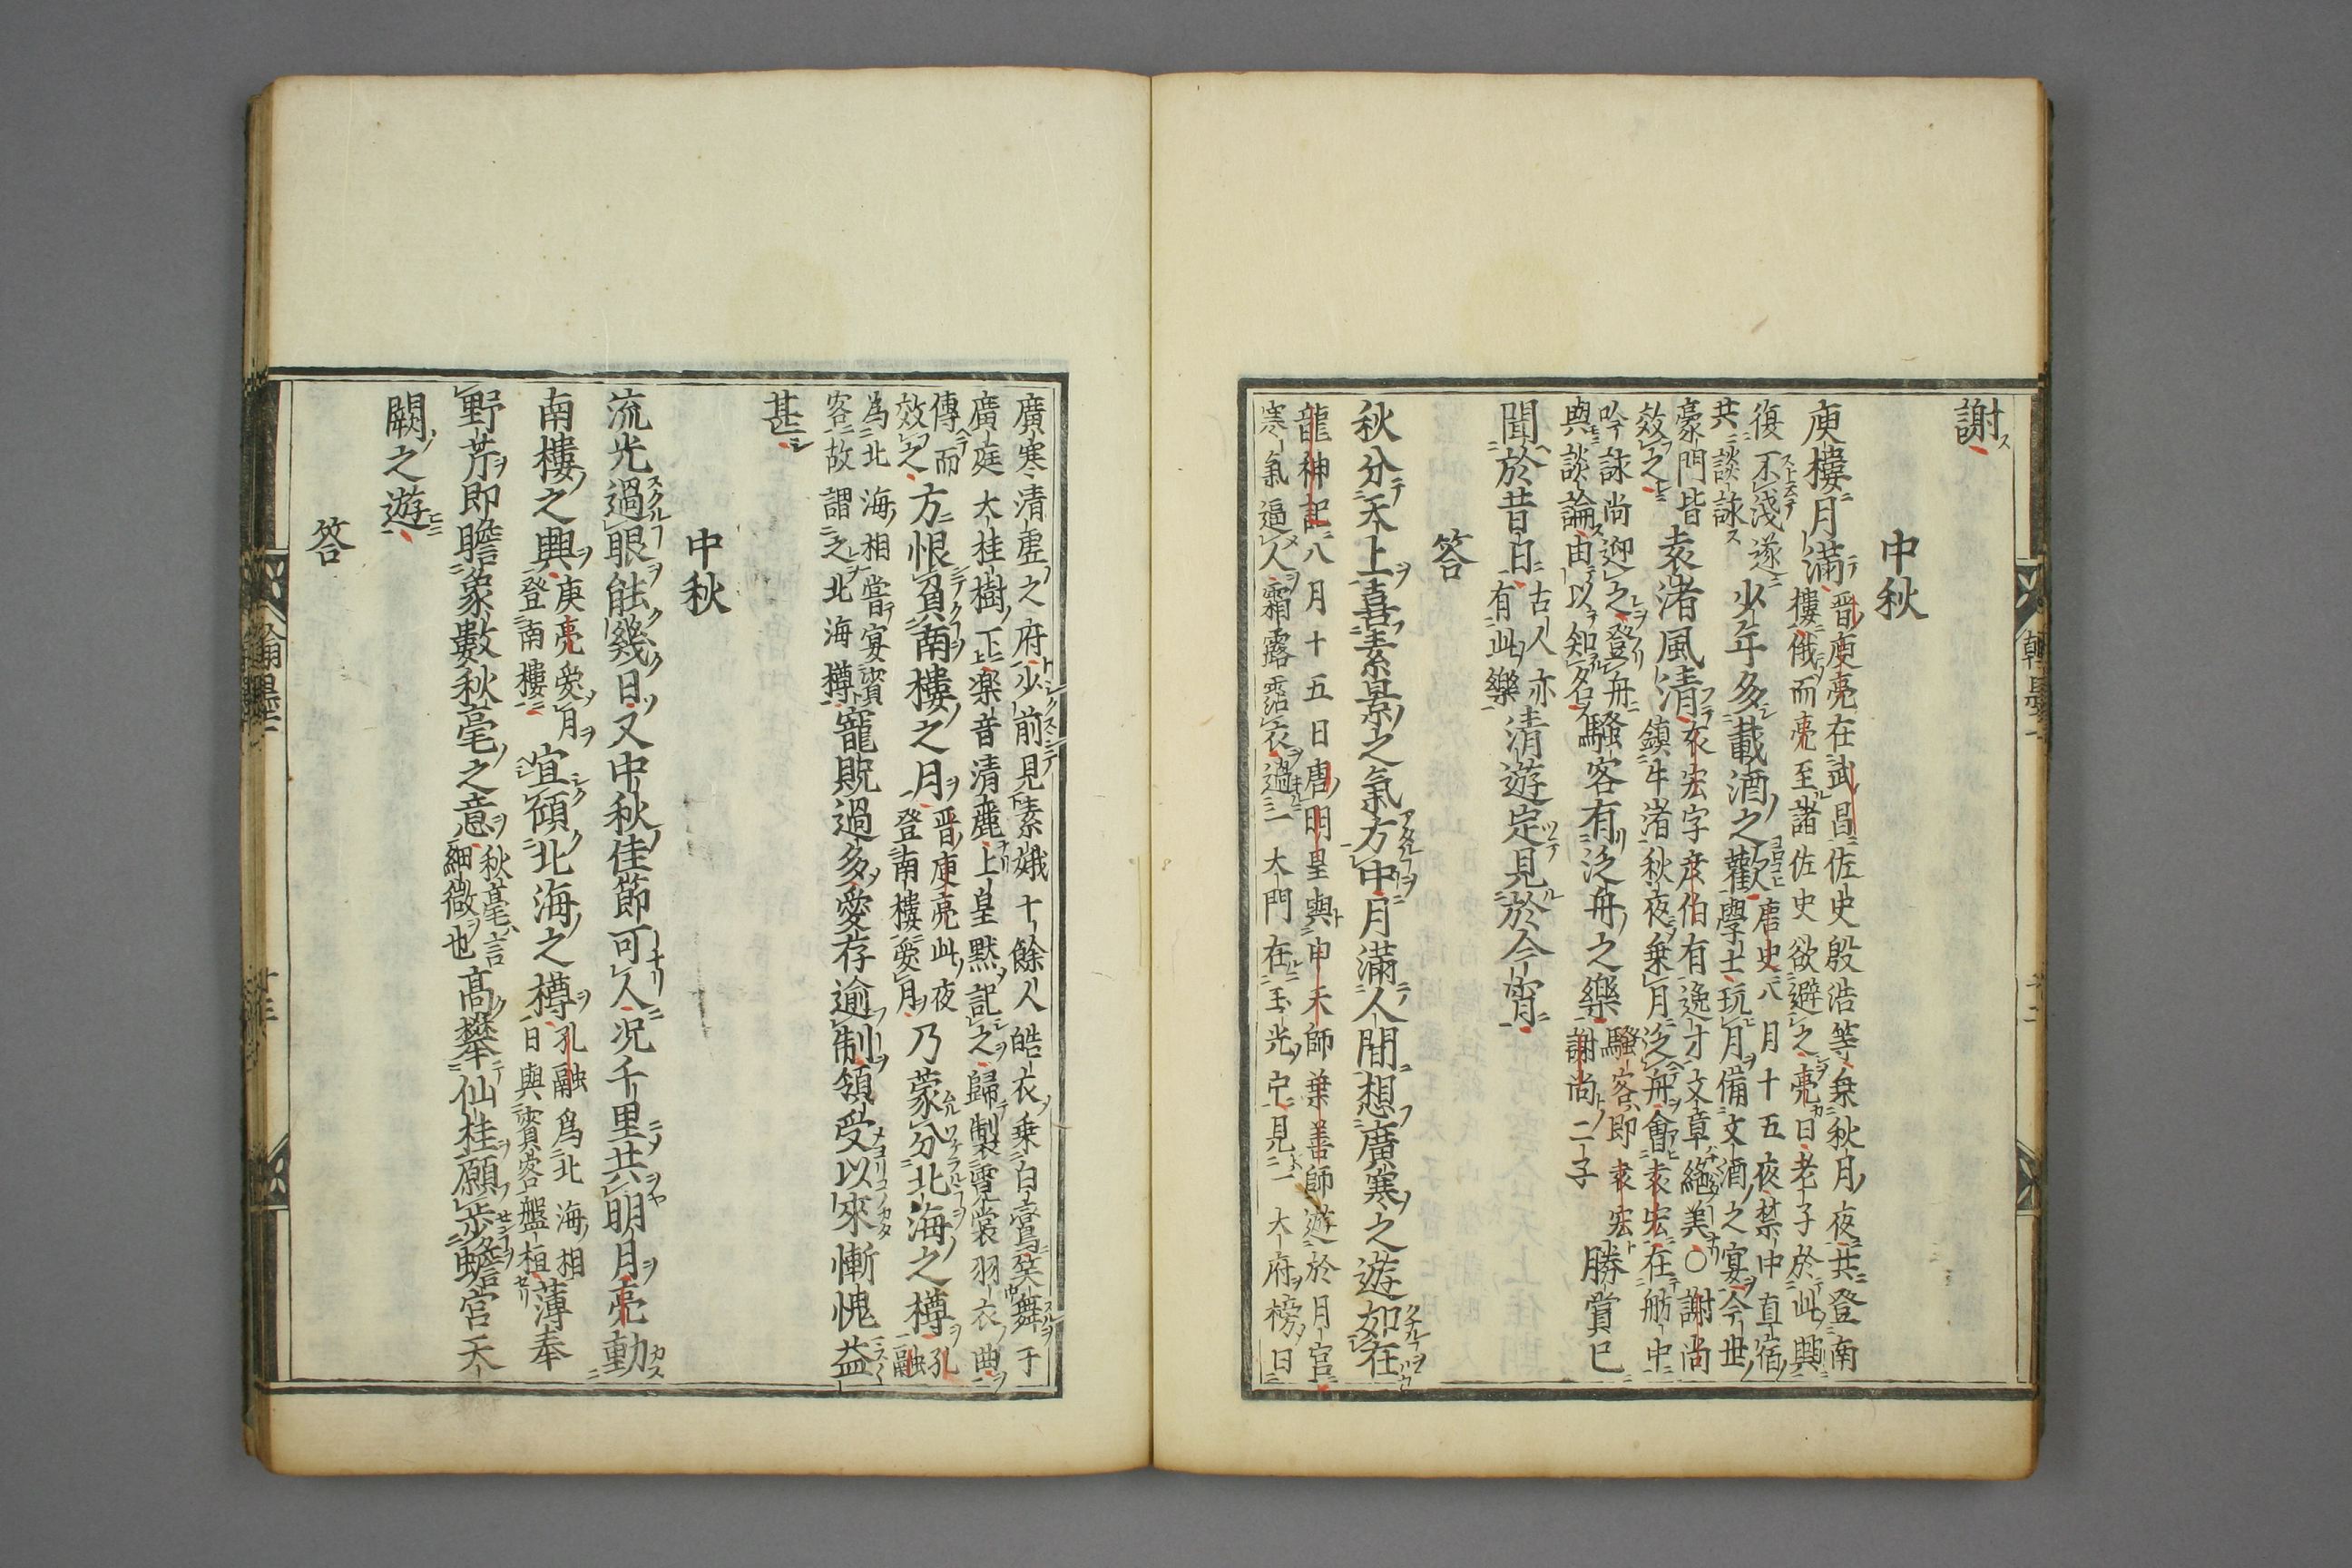 謝
中秋
庾樓月滿
晋庾亮在武昌佐史殷浩等乗秋月夜共登南
樓俄而亮至諸佐史欲避之亮曰老子於此興
復不淺遂
共談詠
少年多載酒之歡
唐史八月十五夜禁中直宿
學士玩月備文酒之宴今世
豪門皆
效之
袁渚風清
袁宏字彦伯有逸才文章絕美○謝尚
鎮牛渚秋夜乗月泛舟會袁宏在舫中
吟詠尚迎之登舟
與談論由以知名
騷客有泛舟之樂
騷客即袁宏
謝尚二子
勝賞已
聞於昔日
古人亦
有此樂
清遊定見於今宵
答
秋分天上喜素景之氣方中月滿人間想廣寒之遊如在
龍神記八月十五日唐明皇與申天師葉善師遊於月宫
寒氣逼人霜露霑衣過一大門在玉光中見一大府榜曰
廣寒清虚之府少前見素娥十餘人皓衣乗白鸞笑舞于
廣庭大桂樹下楽音清麗上皇黙記之歸製霓裳羽衣曲
傳而
效之
方恨負南樓之月
晋庾亮此夜
登南樓愛月
乃蒙分北海之樽
孔
融
為北海相嘗宴賓
客故謂之北海樽
寵貺過多愛存逾制領受以來慚愧益
甚
中秋
流光過眼能幾日又中秋佳節可人况千里共明月亮動
南樓之興
庾亮愛月
登南樓
宜頒北海之樽
孔融為北海相
日與賓客盤桓
薄奉
野芹即瞻象數秋毫之意
秋毫言
細微也
高攀仙桂願步蟾宫天
闕之遊
答
翰墨